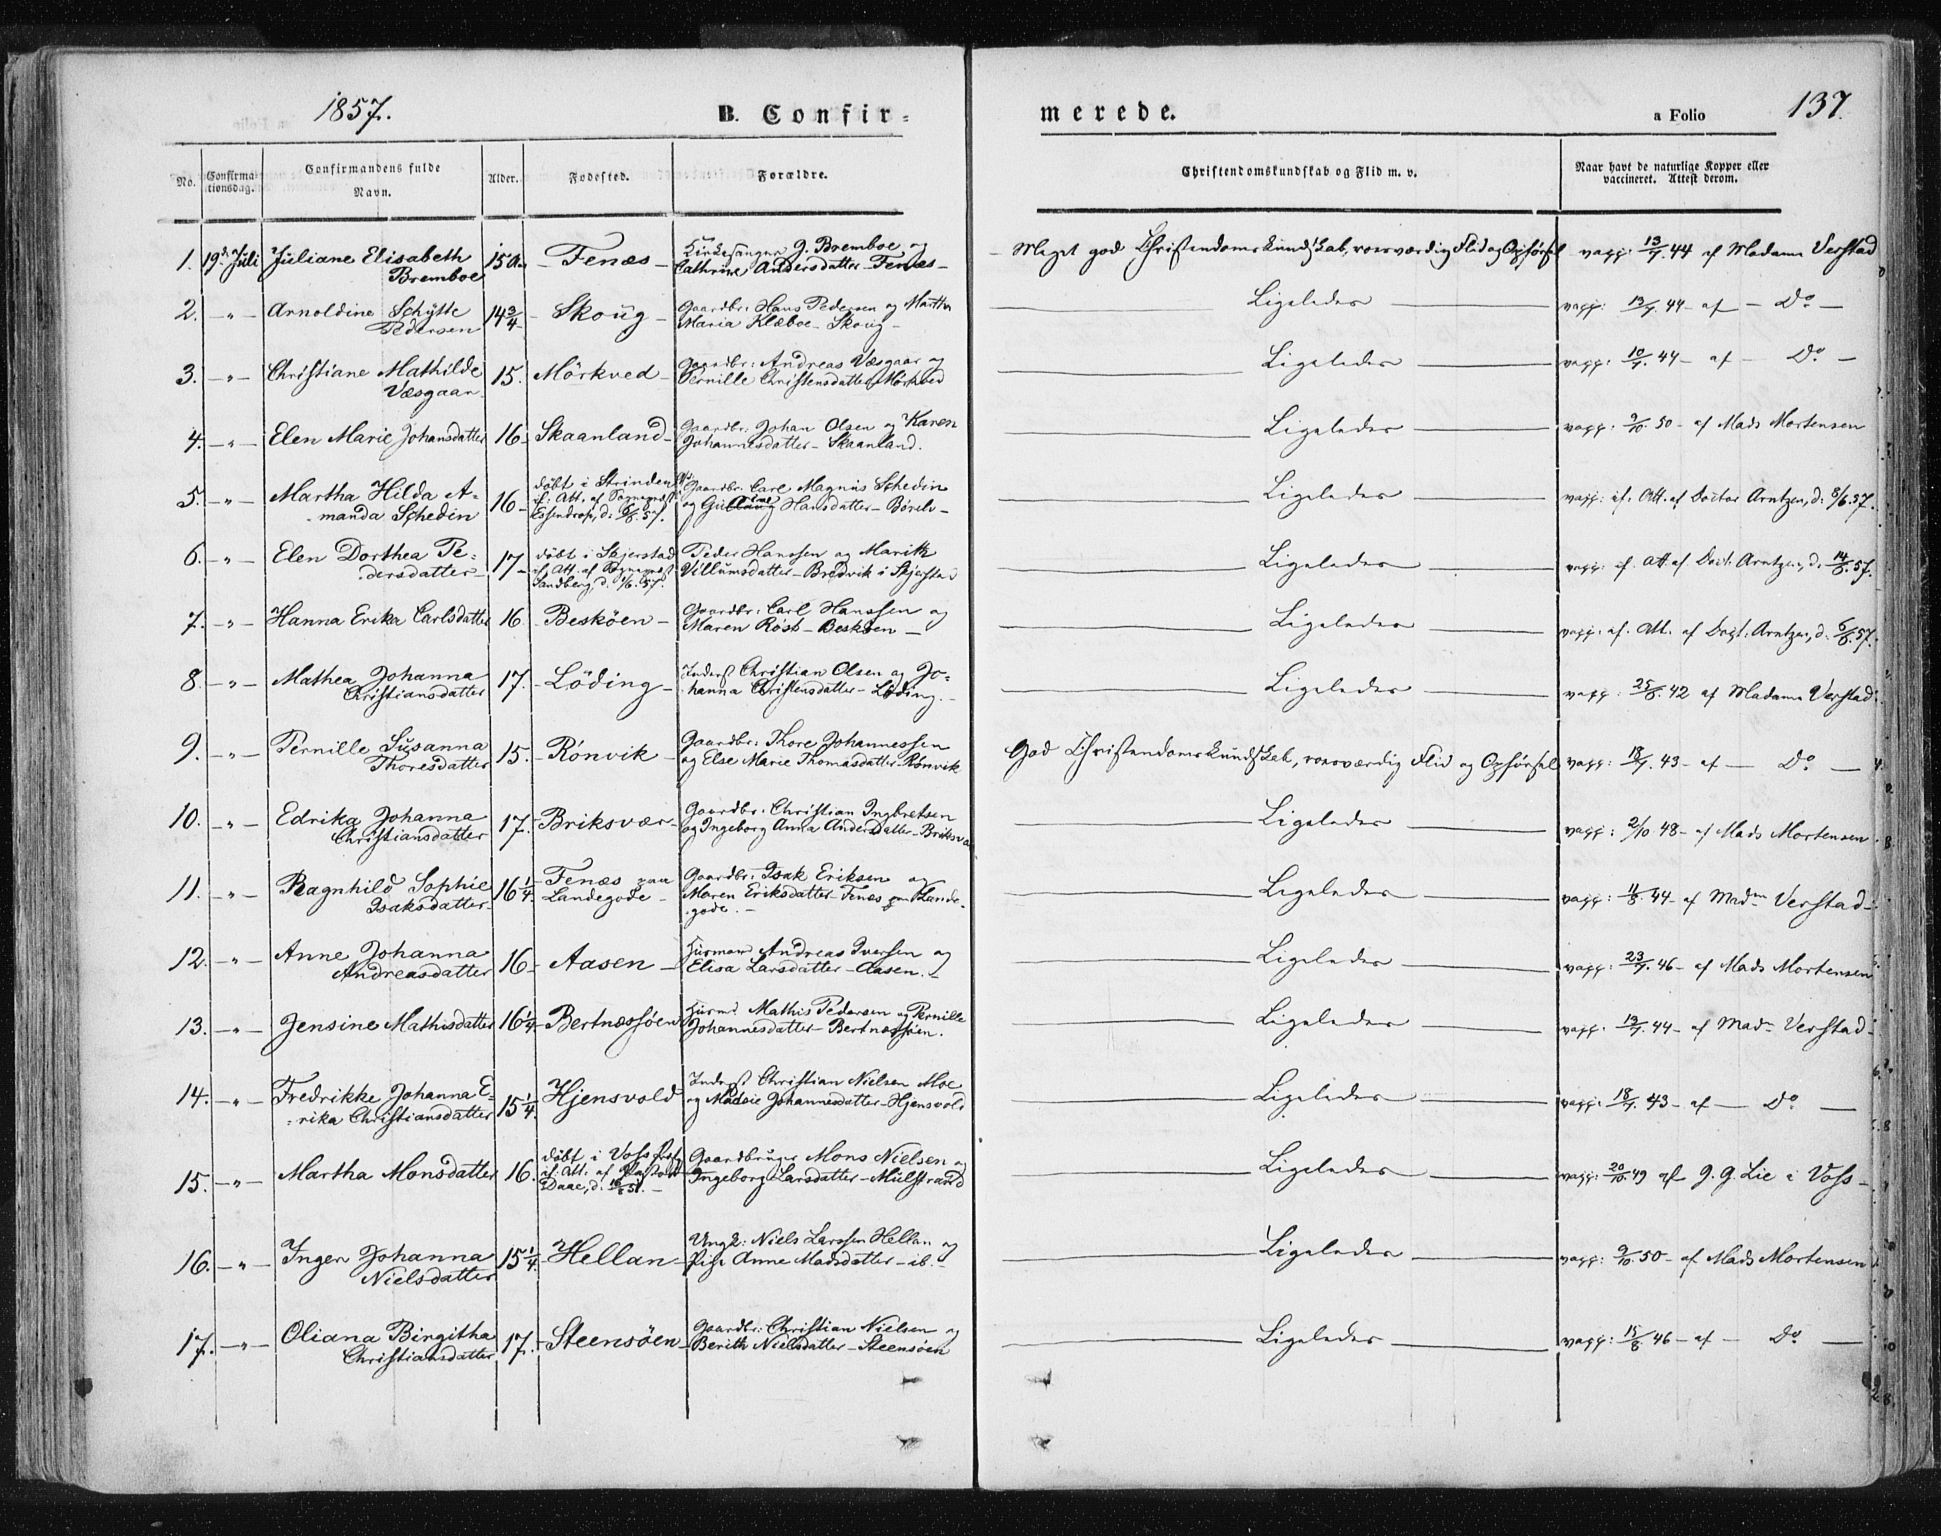 1857.
B. Confir-
merede.
a Folio 137.
No.
Confirma
tionsdag.
Confirmandens fulde
Navn.
Alder.
Fødested.
Forældre.
Christendomskundskab og Flid m. v.
Naar havt de naturlige Kopper eller
vaccineret. Attest derom.
1. 19de Juli Juliane Elisabeth 15 Aar - Fenæs - Kirkesanger J. Bremboe og Meget god Christendomskundskab, roesværdig Flid og Opførsel vacc: 13/7. 44 af Madame Verstad
Bremboe Cathrine Andersdatter - Fenæs -
2. - " - Arnoldine Schytte 14 3/4 - Skoug - Gaardbr: Hans Pedersen og Martha Ligeledes vacc: 13/7. 44 - af - Do -
Pedersen Maria Klæboe - Skoug -
3. - " - Christiane Mathilde 15. Mörkved - Gaardbr: Andreas Væsgaar og Ligeledes vacc: 10/7. 44 - af - Do -
Væsgaar Pernille Christensdatter Mörkved
4. - " - Elen Marie Johansdatter 16 - Skaanland - Gaardbr: Johan Olsen og Karen Ligeledes vacc: 9/10. 50 - af Mads Mortensen
Johannesdatter - Skaanland.
5. - " - Martha Hilda A- 16 - döbt i Strinden Gaardbr: Carl Magnus Schedin Ligeledes vacc: if. Att. af Doctor Arntzen, d: 8/6. 37.
manda Schedin if: Att. af Sogneprest og Hansdatter - Börch -
Essendrop, d: 57.
6. - " - Elen Dorthea Pe- 17 - döbt i Skjerstad Peder Hanssen og Marith Ligeledes vacc: if. Att. af Doct. Arntzen, d. 14/6. 57.
dersdatter if. Att. af Sognepr: Villumsdatter - Bredvik i Skjerstad
Sandberg, d. 1/6. 57.
7. - " - Hanna Erika Carlsdatter 16 - Besköen - Gaardbr: Carl Hanssen og Ligeledes vacc. if. Att. af Doct. Arntzen, d. 57.
Maren Röst - Besköen -
8 - " - Mathea Johanna 17. - Löding - Inderst Christian Olsen og Jo- Ligeledes vacc: 25/8. 42 af Madame Verstad.
Christiansdatter hanna Christensdatter - Löding. -
9. - " - Pernille Susanna 15. - Rönvik - Gaardbr: Thore Johannessen God Christendomskundskab, roesværdig Flid og Opførsel vacc: 18/7. 43 - af - Do -
Thoresdatter og Else Marie Thomasdatter - Rönvik
10. - " - Edrika Johanna 17. - Briksvær - Gaardbr: Christian Ingbretsen Ligeledes vacc: 2/10. 48 - af Mads Mortensen
Christiansdatter og Ingeborg Anna Andersdatter - Briksvær
11. - " - Ragnhild Sophie 16 1/4 - Fenæs paa Gaardbr: Isak Eriksen og Ligeledes vacc: 11/8. 44 - af Madm Verstad -
Isaksdatter Landegode - Maren Eriksdatter - Fenæs paa Lande-
gode. -
12. - " - Anne Johanna 16 - Aasen - Huusmand Andreas Iversen og Ligeledes vacc: 23/9. 46 - af Mads Mortensen
Andreasdatter Elisa Larsdatter - Aasen. -
13. - " - Jensine Mathisdatter 16 1/4 - Bertnæssjöen Huusmd. Mathis Pedersen og Pernille Ligeledes vacc. 13/7. 44 - af Madm Verstad -
Johannesdatter - Bertnæssjöen.
14. - " - Fredrikke Johanna E- 15 1/4. Hjensvold Inderst Christian Nielsen Moe Ligeledes vacc: 18/7. 43 - af - Do -
rika Christiansdatter og Johannesdatter - Hjensvold
15. - " - Martha Monsdatter 16. döbt i Voss Pstg. Gaardbruger Mons Nielsen og Ligeledes vacc: 20/10. 49 af J. G. Lie i Voss -
if: Att. af Pastor Ingeborg Larsdatter - Mulstrand
Daae, d. -
16. - " - Inger Johanna 15 1/4. Hellan - Ungk: Niels Larssen Hellan og Ligeledes vacc: 9/10. 50 - af Mads Mortensen
Nielsdatter Pige Anne Madsdatter - ib. -
17. - " - Oliana Birgitha 17. - Steensöen - Gaardbr: Christian Nielsen og Ligeledes vacc: 15/8. 46 - af - Do -
Christiansdatter Berith Nielsdatter - Steensöen